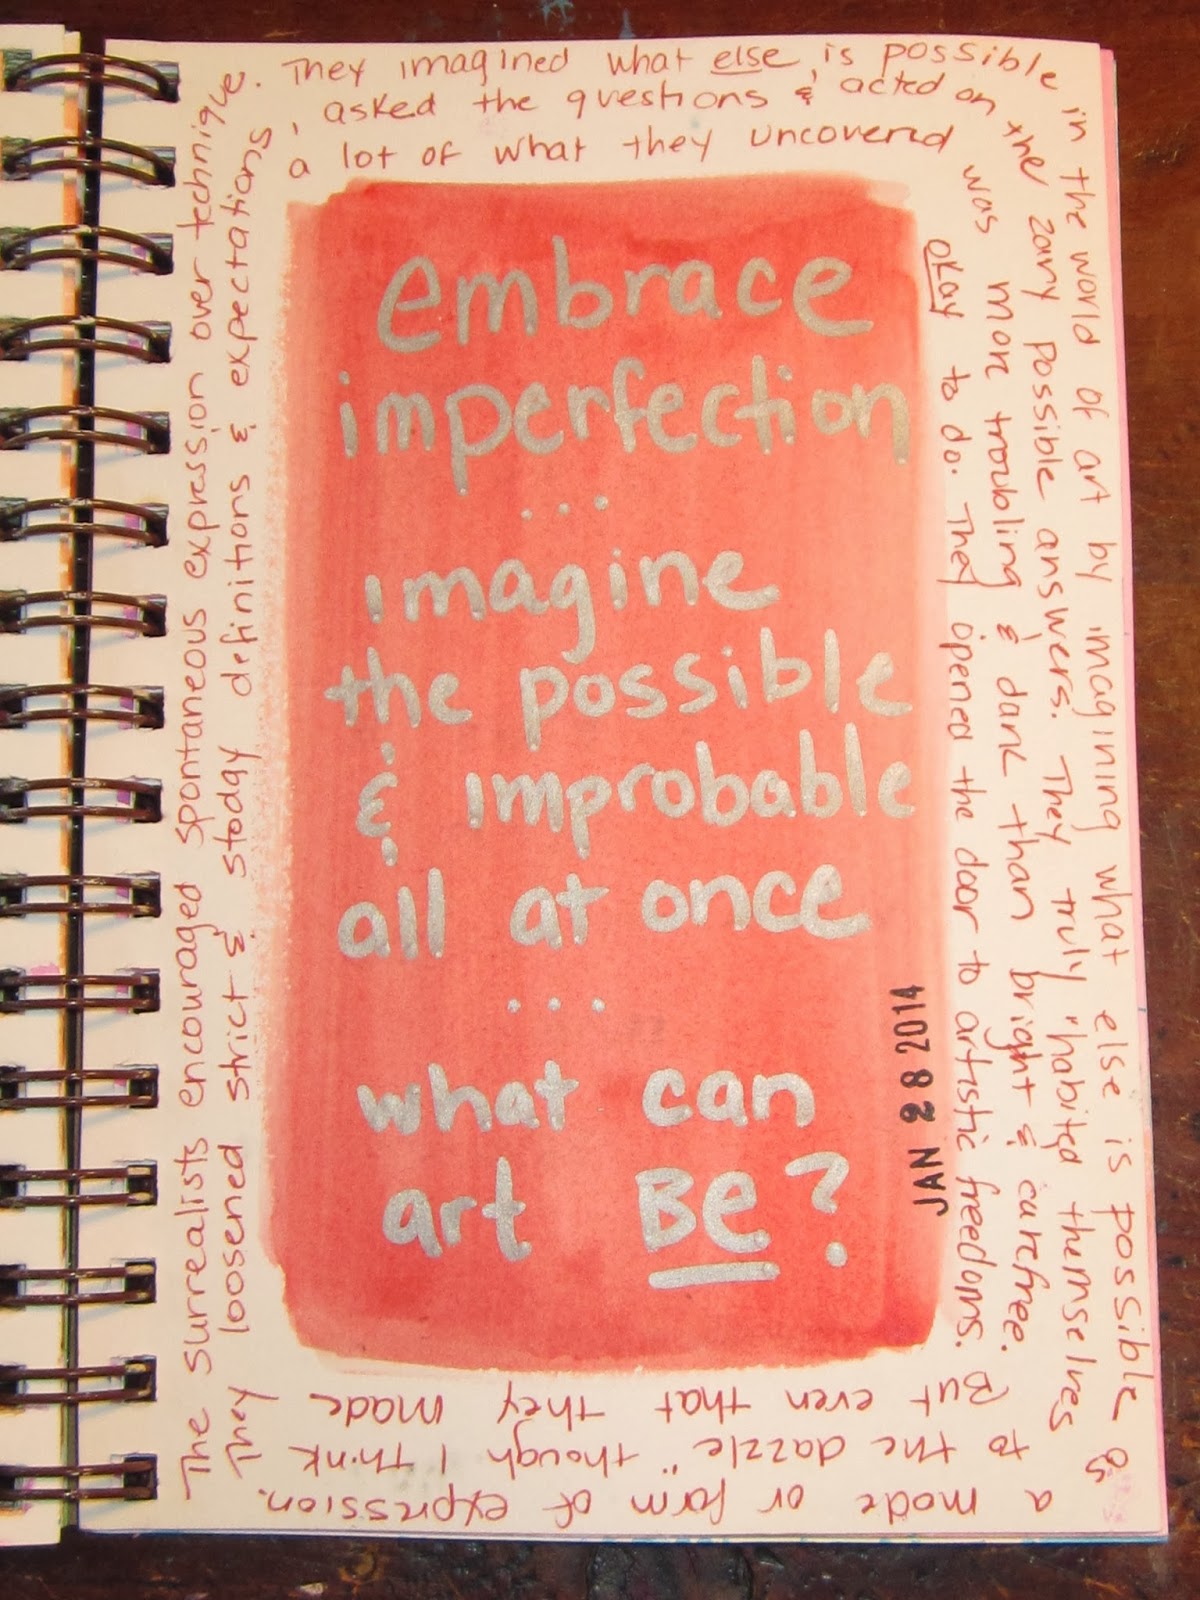 The surrealists encouraged spontaneous expression over technique.
They imagined what else is possible
in the world of art by imagining what else is possible as
a mode or form of expression.
They loosened strict & stoday definitions & expectations,
asked the questions & acted on
the zany possible answers. They truly "habited themselves
to the dazzle" though I think
a lot of what they uncovered
was more troubling & dark than bright & carefree.
But even that they made
okay to do. They opened the door to artistic freedoms.
embrace
imperfection
...
imagine
the possible
& improbable
all at once
...
what can
art BE?
JAN 28 2014